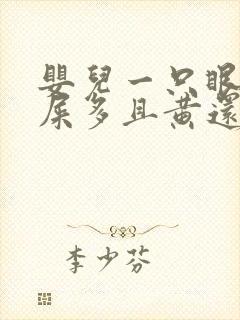 嬰兒一只眼
屎多且黃還
李少芬